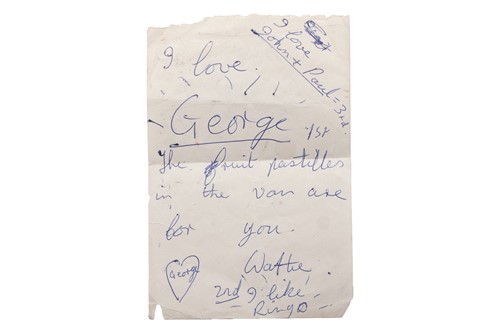 I love
John + Paul = 3rd.
I love.
George 1st
The fruit pastilles
in the van are
for you.
George
2nd I like
Ringo